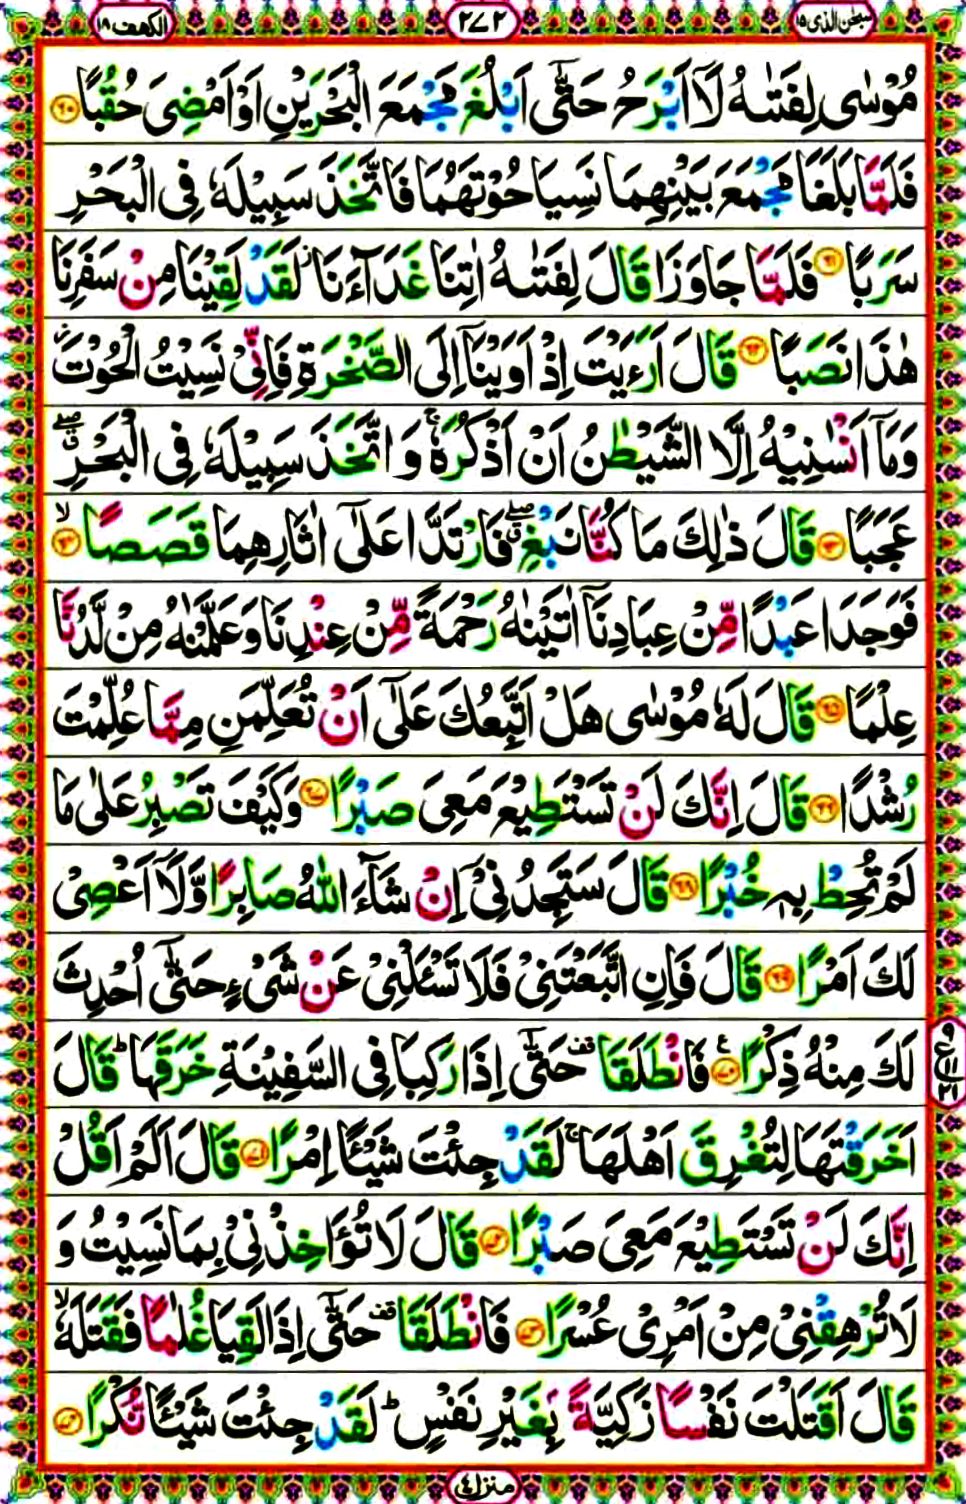 سبحٰن الذی ۱۵ ۲۷۲ الکهف ۱۸
مُوْسٰى لِفَتٰىهُ لَاۤ اَبْرَحُ حَتّٰۤى اَبْلُغَ مَجْمَعَ الْبَحْرَیْنِ اَوْ اَمْضِیَ حُقُبًا ﴿۶۰﴾
فَلَمَّا بَلَغَا مَجْمَعَ بَیْنِهِمَا نَسِیَا حُوْتَهُمَا فَاتَّخَذَ سَبِیْلَهٗ فِی الْبَحْرِ
سَرَبًا ﴿۶۱﴾ فَلَمَّا جَاوَزَا قَالَ لِفَتٰىهُ اٰتِنَا غَدَآءَنَا ؗ لَقَدْ لَقِیْنَا مِنْ سَفَرِنَا
هٰذَا نَصَبًا ﴿۶۲﴾ قَالَ اَرَءَیْتَ اِذْ اَوَیْنَاۤ اِلَى الصَّخْرَةِ فَاِنِّیْ نَسِیْتُ الْحُوْتَ ؗ
وَمَاۤ اَنْسٰىنِیْهُ اِلَّا الشَّیْطٰنُ اَنْ اَذْكُرَهٗ ۚ وَ اتَّخَذَ سَبِیْلَهٗ فِی الْبَحْرِ ۖۗ
عَجَبًا ﴿۶۳﴾ قَالَ ذٰلِكَ مَا كُنَّا نَبْغِ ۖۗ فَارْتَدَّا عَلٰۤى اٰثَارِهِمَا قَصَصًا ۙ﴿۶۴﴾
فَوَجَدَا عَبْدًا مِّنْ عِبَادِنَاۤ اٰتَیْنٰهُ رَحْمَةً مِّنْ عِنْدِنَا وَ عَلَّمْنٰهُ مِنْ لَّدُنَّا
عِلْمًا ﴿۶۵﴾ قَالَ لَهٗ مُوْسٰى هَلْ اَتَّبِعُكَ عَلٰۤى اَنْ تُعَلِّمَنِ مِمَّا عُلِّمْتَ
رُشْدًا ﴿۶۶﴾ قَالَ اِنَّكَ لَنْ تَسْتَطِیْعَ مَعِیَ صَبْرًا ﴿۶۷﴾ وَكَیْفَ تَصْبِرُ عَلٰى مَا
لَمْ تُحِطْ بِهٖ خُبْرًا ﴿۶۸﴾ قَالَ سَتَجِدُنِیْۤ اِنْ شَآءَ اللّٰهُ صَابِرًا وَّ لَاۤ اَعْصِیْ
لَكَ اَمْرًا ﴿۶۹﴾ قَالَ فَاِنِ اتَّبَعْتَنِیْ فَلَا تَسْـَٔلْنِیْ عَنْ شَیْءٍ حَتّٰۤى اُحْدِثَ
لَكَ مِنْهُ ذِكْرًا ﴿۷۰﴾ۧ فَانْطَلَقَا ۥ حَتّٰۤى اِذَا رَكِبَا فِی السَّفِیْنَةِ خَرَقَهَا ؕ قَالَ
اَخَرَقْتَهَا لِتُغْرِقَ اَهْلَهَا ۚ لَقَدْ جِئْتَ شَیْـًٔا اِمْرًا ﴿۷۱﴾ قَالَ اَلَمْ اَقُلْ
اِنَّكَ لَنْ تَسْتَطِیْعَ مَعِیَ صَبْرًا ﴿۷۲﴾ قَالَ لَا تُؤَاخِذْنِیْ بِمَا نَسِیْتُ وَ
لَا تُرْهِقْنِیْ مِنْ اَمْرِیْ عُسْرًا ﴿۷۳﴾ فَانْطَلَقَا ۥ حَتّٰۤى اِذَا لَقِیَا غُلٰمًا فَقَتَلَهٗ ۙ
قَالَ اَقَتَلْتَ نَفْسًا زَكِیَّةًۢ بِغَیْرِ نَفْسٍ ؕ لَقَدْ جِئْتَ شَیْـًٔا نُّكْرًا ﴿۷۴﴾
ع ۹ ۱۱ ۲۱
منزل ۴